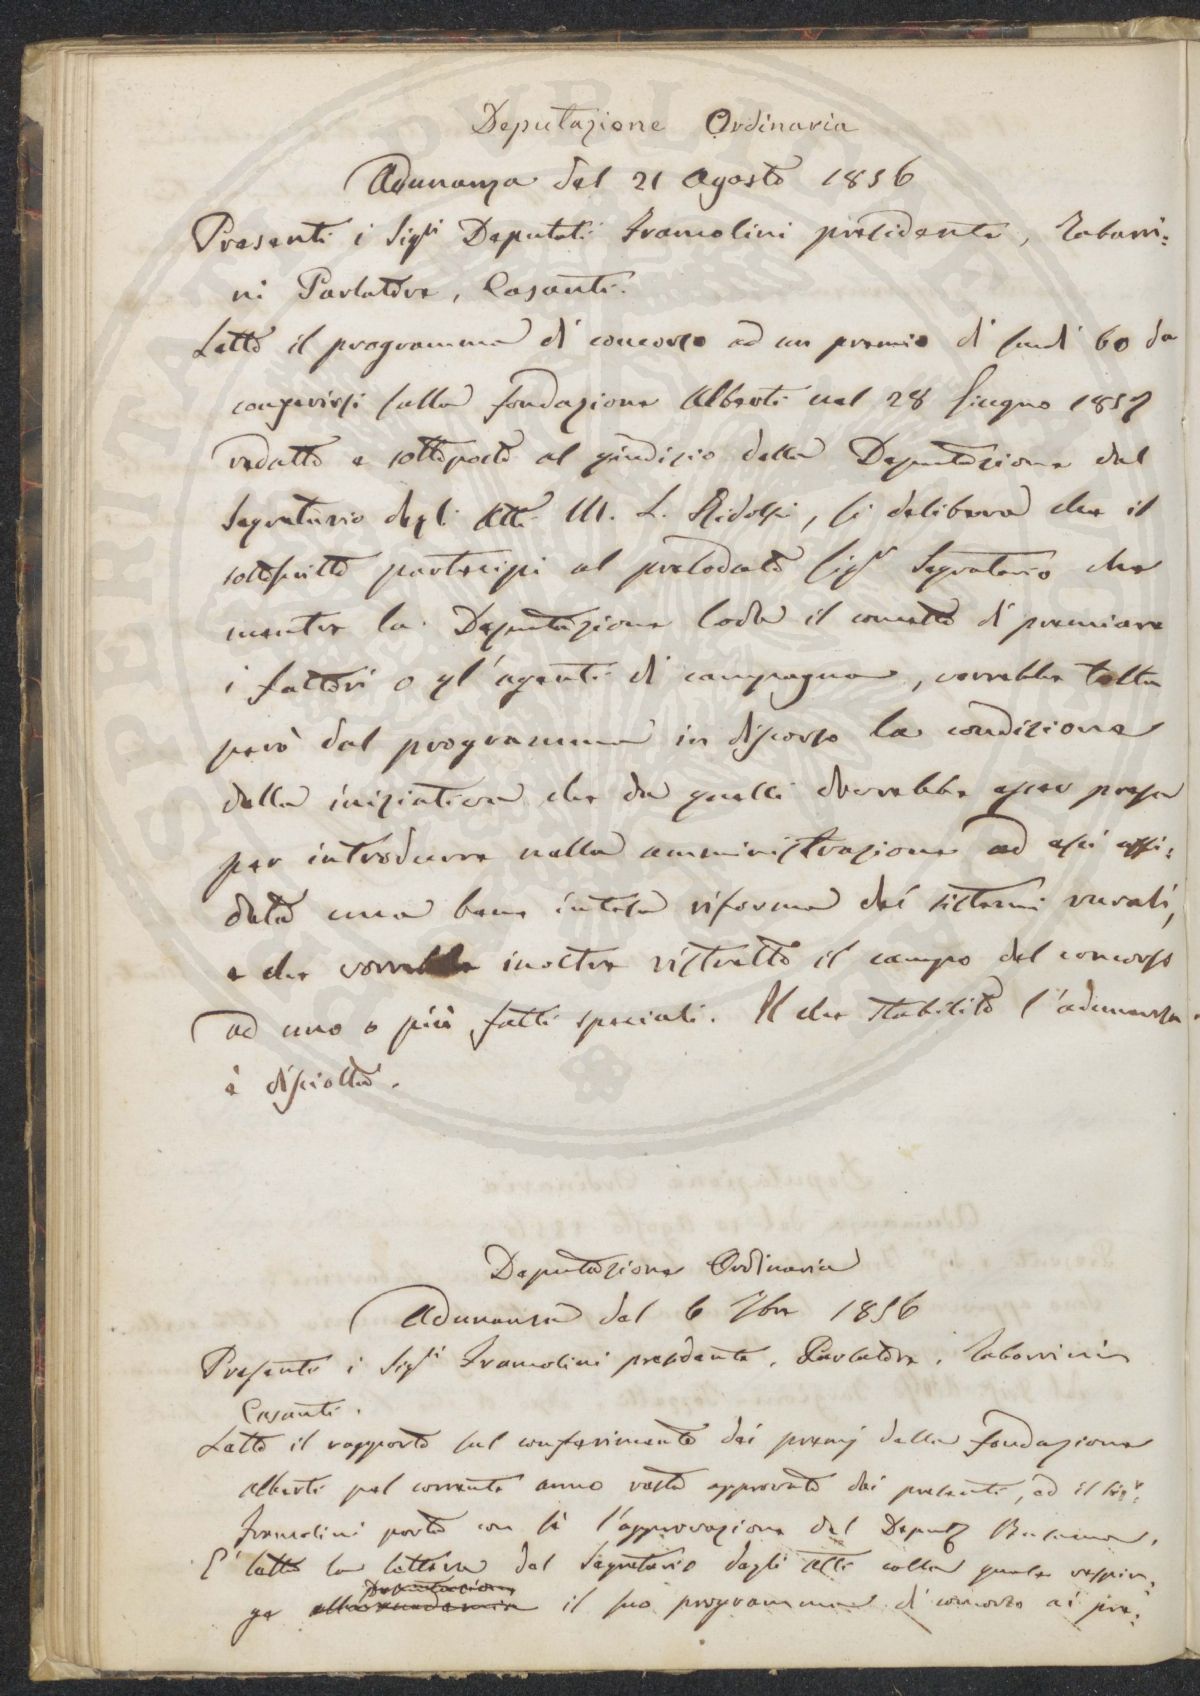 Deputazione Ordinaria
Adunanza del 21 Agosto 1856
Presenti i Sigri Deputati Tramolini presidente, Tabarri=
ni Parlatore, Casanti.
Letto il programma di concorso ad un premio di scudi 60 da
conferirsi sulla fondazione Alberti nel 28 Giugno 1857
redatto e sottoposto al giudizio della Deputazione dal
Segretario degli Atti M. L. Ridolfi, si delibera che il
sottoscritto partecipi al prelodato Sigr Segretario che
mentre la Deputazione loda il concetto di premiare
i fattori o gl'agenti di campagna, vorrebbe tolta
però dal programma in discorso la condizione
della iniziativa che da quelli dovrebbe esser presa
per introdurre nella amministrazione ad essi affi=
data una bene intesa riforma dei sistemi rurali,
e che vorrebbe inoltre ristretto il campo del concorso
ad uno o più fatti speciali. Il che stabilito l'adunanza
è disciolta.
Deputazione Ordinaria
Adunanza del 6 7bre 1856
Presenti i Sigri Tramolini presidente, Parlatore, Tabarrini
Casanti.
Letto il rapporto sul conferimento dei premj della fondazione
Alberti pel corrente anno resta approvato dai presenti, ed il Sigr
Tramolini porta con sè l'approvazione del Deputo
E' letta la lettera del Segretario degli Atti colla quale respin=
ge alla Accademia Deputazione il suo programma di concorso ai pre=